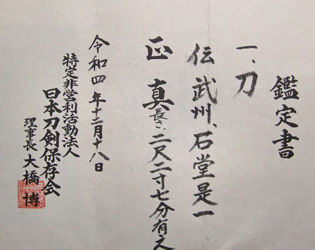 鑑定書
一、刀
伝 武州、石堂是一
正真 長、二尺二寸七分有之
令和四年十二月十八日
特定非営利活動法人
日本刀剣保存会
理事長 大橋 博